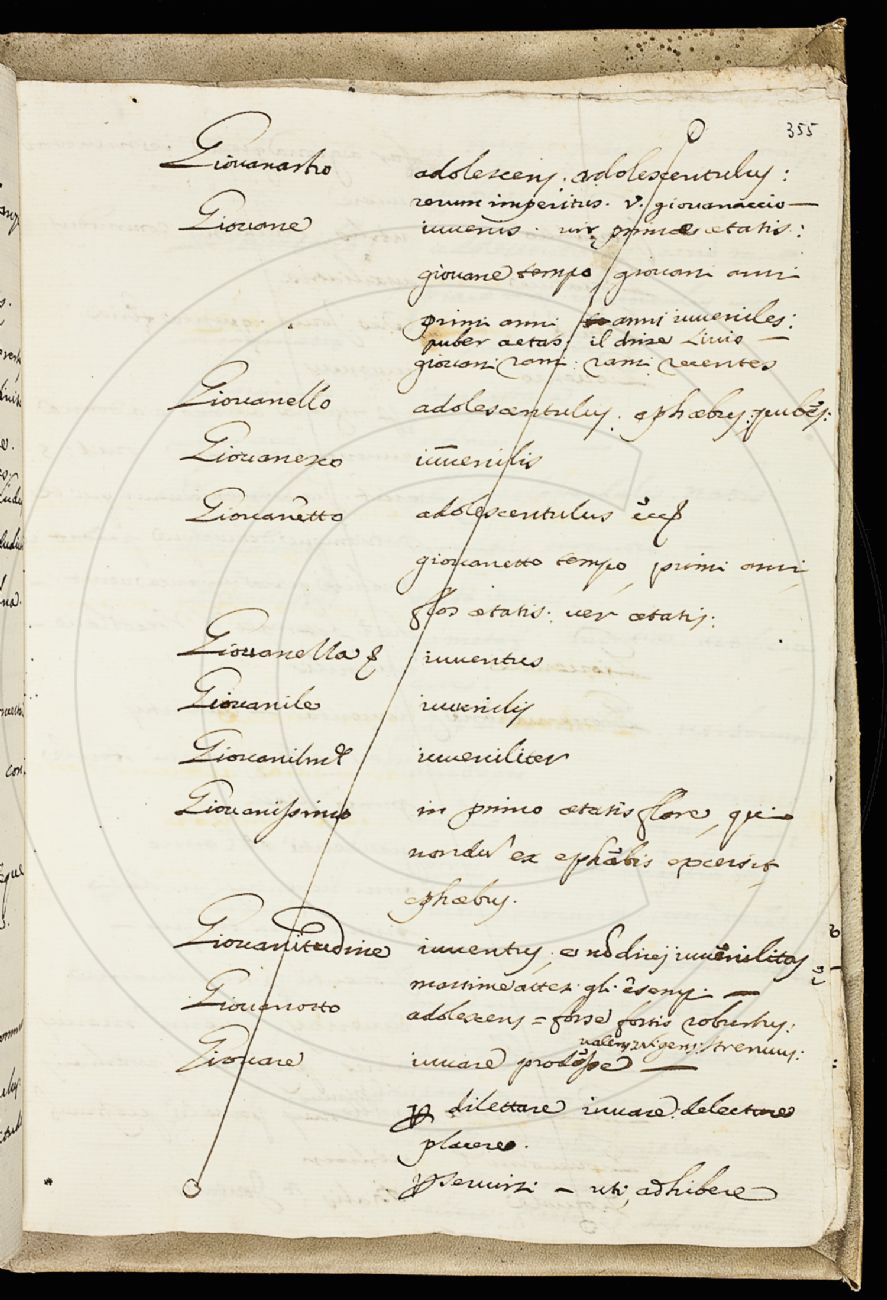 355
Giouanastro adolescens. adolescentulus:
rerum imperitus. v. giouanaccio —
Giouane iuuenis. vir primæ ætatis:
giouane tempo, giouani anni
primi anni anni iuueniles:
puber aetas. il disse Liuio —
giouani rami. rami recentes
Giouanello adolescentulus. ephæbus. pubes:
Giouanesco iuuenilis
Giouanetto adolescentulus
giouanetto tempo, primi anni,
flos ætatis. ver ætatis:
Giouanella iuuentus
Giouanile iuuenilis
Giouanilmte iuueniliter
Giouanissimo in primo ætatis flore, qui
nondu ex ephæbis excessit
ephæbus.
Giouanitudine iuuentus. e no direi iuuenilitas
massime attesi gli esempi. —
Giouanotto adolescens = forse fortis robustus:
valens vigens strenuus:
Giouare iuuare prodesse —
p dilettare iuuare. delectare
placere.
p seruirsi — uti, adhibere